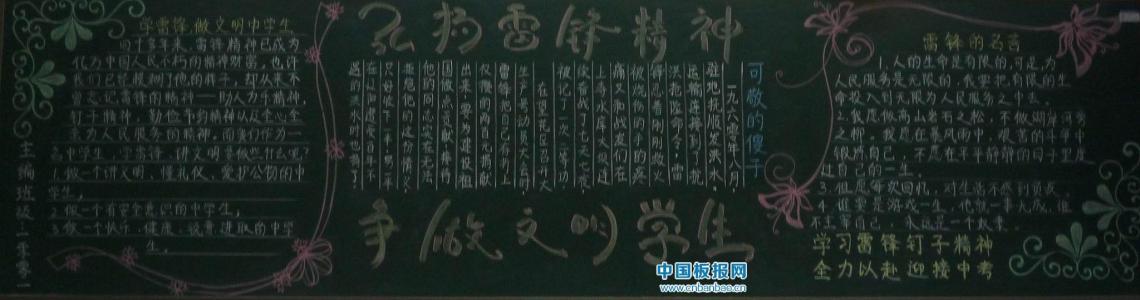 弘扬雷锋精神
争做文明学生
学雷锋,做文明中学生
四十多年来,雷锋精神已成为
化为中国人民不朽的精神财富。也许
我们已经模糊了他的样子,却从来不
曾忘记雷锋的精神——助人为乐精神,
钉子精神,勤俭节约精神以及全心全
意为人民服务的精神。而我们作为一
名中学生,学雷锋,讲文明要做些什么呢?
1.做一个讲文明、懂礼仪、爱护公物的中
学生,
2.做一个有安全意识的中学生,
3.做一个快乐、健康、锐意进取的中学
生。
主编班级:三零零一
可敬的傻子
一九六零年八月,
驻地抚顺发洪水,
运输连接到了抗
洪抢险命令,雷
锋忍着刚刚救火
被烧伤的手的疼
痛又和战友们在
上寺水库大坝连
续奋战了七天七夜,
被记了一次二等功。
在望花区召开大
生产号动员大会时,
雷锋把自己存折上
仅攒的两百元捐献
出来,要为建设祖
国做点贡献,接待
他的同志实在无法
拒绝他的这份情义,
只好收下一半。另一
半在辽阳遭受百年不
遇的洪水时也捐了。
雷锋的名言
1.人的生命是有限的,可是,为
人民服务是无限的,我要把有限的生
命投入到无限为人民服务之中去。
2.我愿做高山岩石之松,不做湖岸河旁
之柳。我愿在暴风雨中,艰苦的斗争中
锻炼自己,不愿在平平静静的日子里度
过自己的一生。
3.但愿每次回忆,对生活不感到负疚。
4.但要是游戏一生,他就一事无成,谁
不主宰自己,永远是一个奴隶。
学习雷锋钉子精神
全力以赴 迎接中考
中国板报网
www.cnbanbao.cn